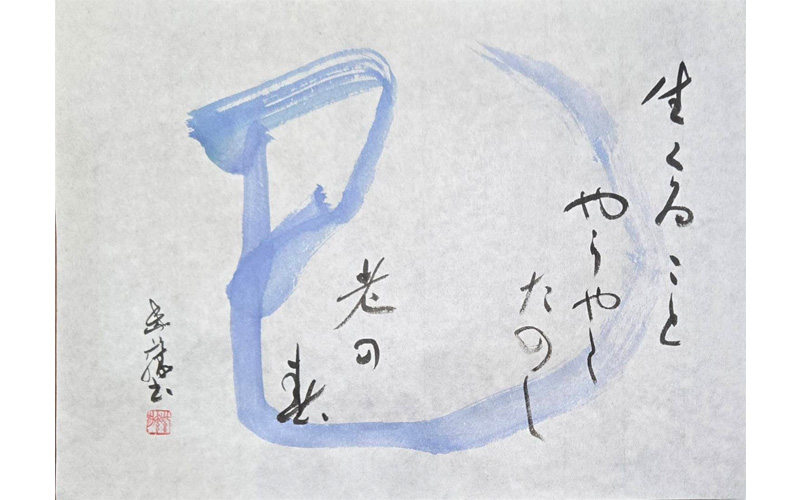 巳
生くること
やうやく
たのし
老の
春